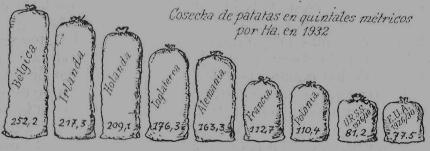 Cosecha de patatas en quintales métricos
por Ha. en 1932
Bélgica
252,2
Irlanda
217,3
Holanda
209,1
Inglaterra
176,3
Alemania
163,3
Francia
112,7
Polonia
110,4
U.R.S.S.
81,2
E.U.A.
77.5